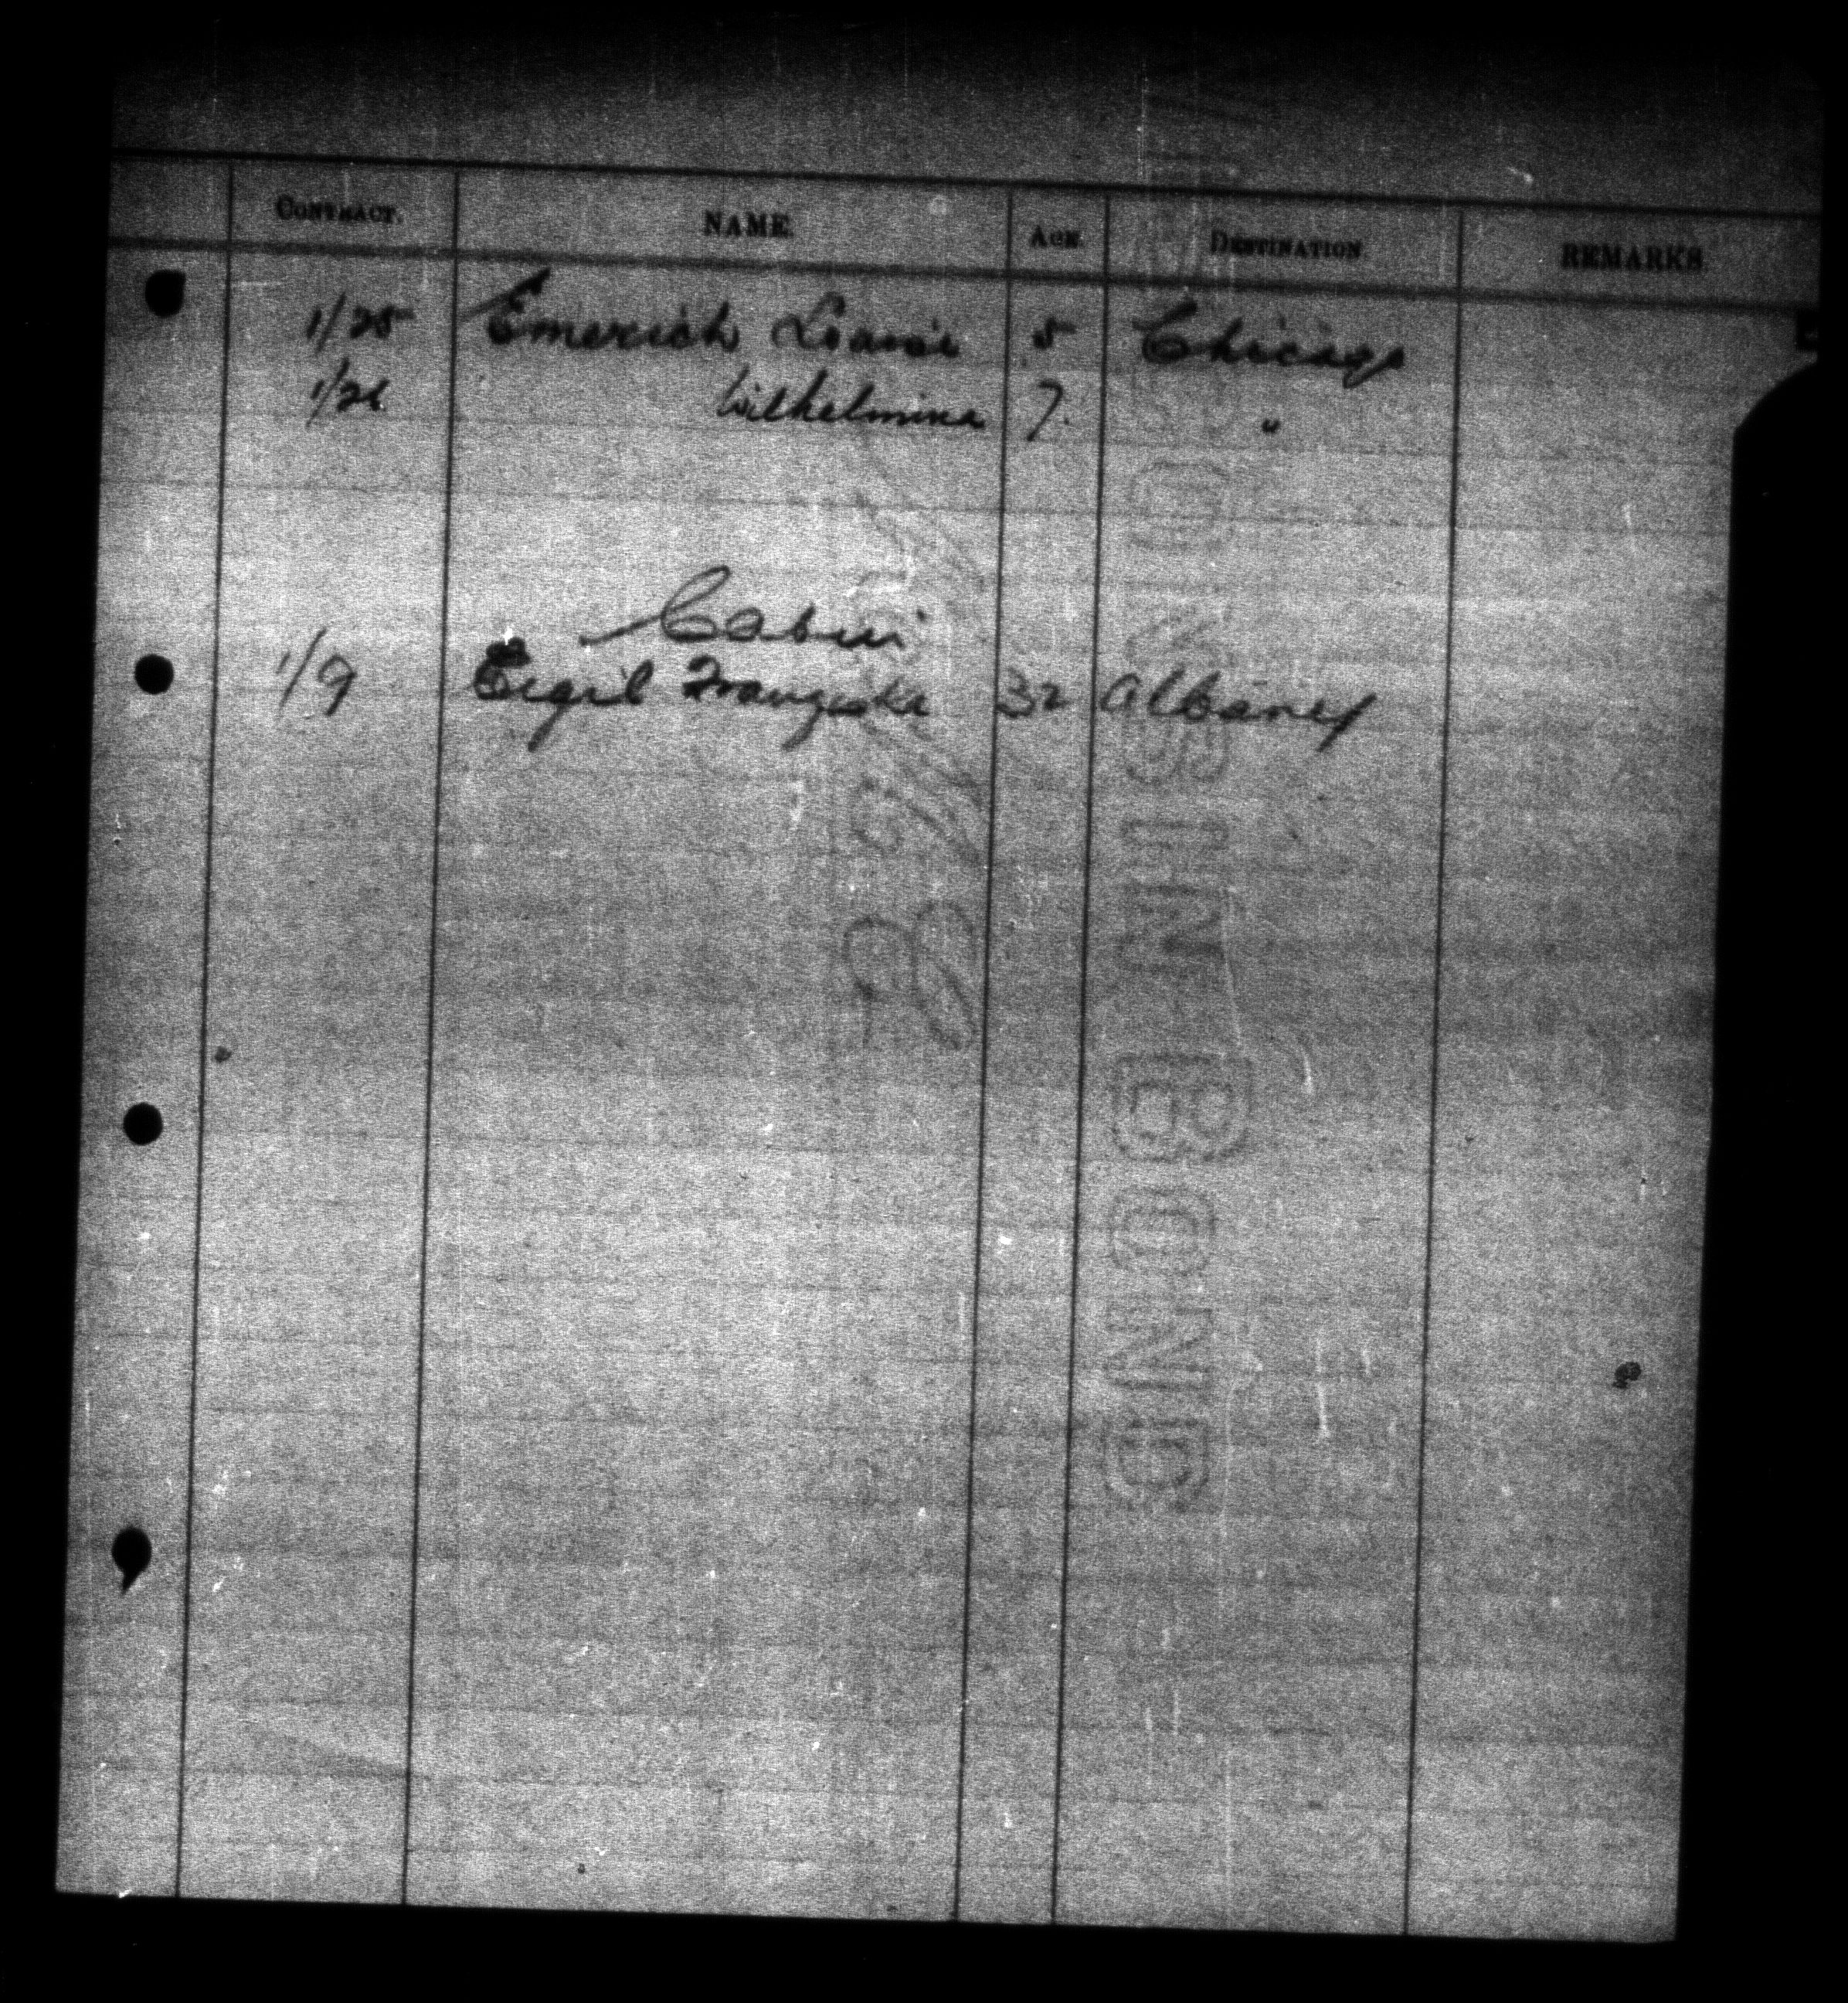 CONTRACT. NAME. AGE. DESTINATION REMARKS
1/25 Emerich Louise 5 Chicago
1/26 Wilhelmina 7. "
Cabin
1/9 Franziska 32 Albany
IN BOND